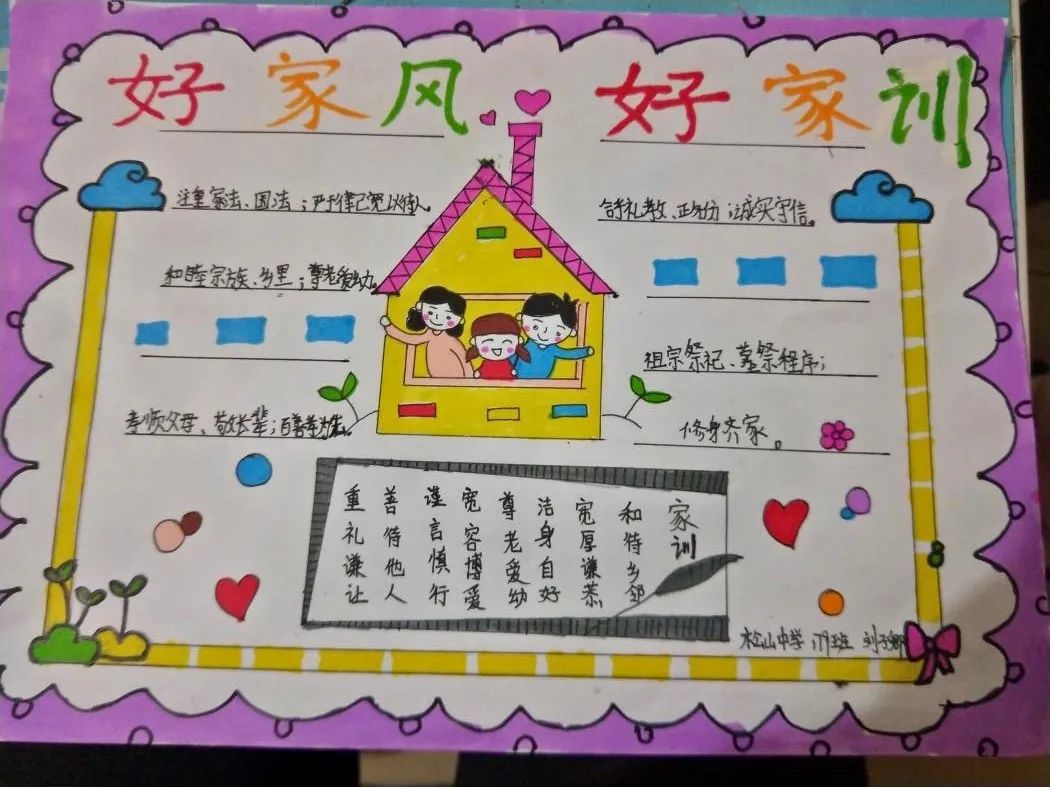 好家风 好家训
注重家法、国法；严于律己宽以待人。
和睦宗族、乡里；尊老爱幼。
孝顺父母、敬长辈；百善孝为先。
合乎礼教、正名分；诚实守信。
祖宗祭祀、墓祭程序；
修身齐家。
家训
和待乡邻
宽厚谦恭
洁身自好
尊老爱幼
宽容博爱
谨言慎行
善待他人
重礼谦让
松山中学 班